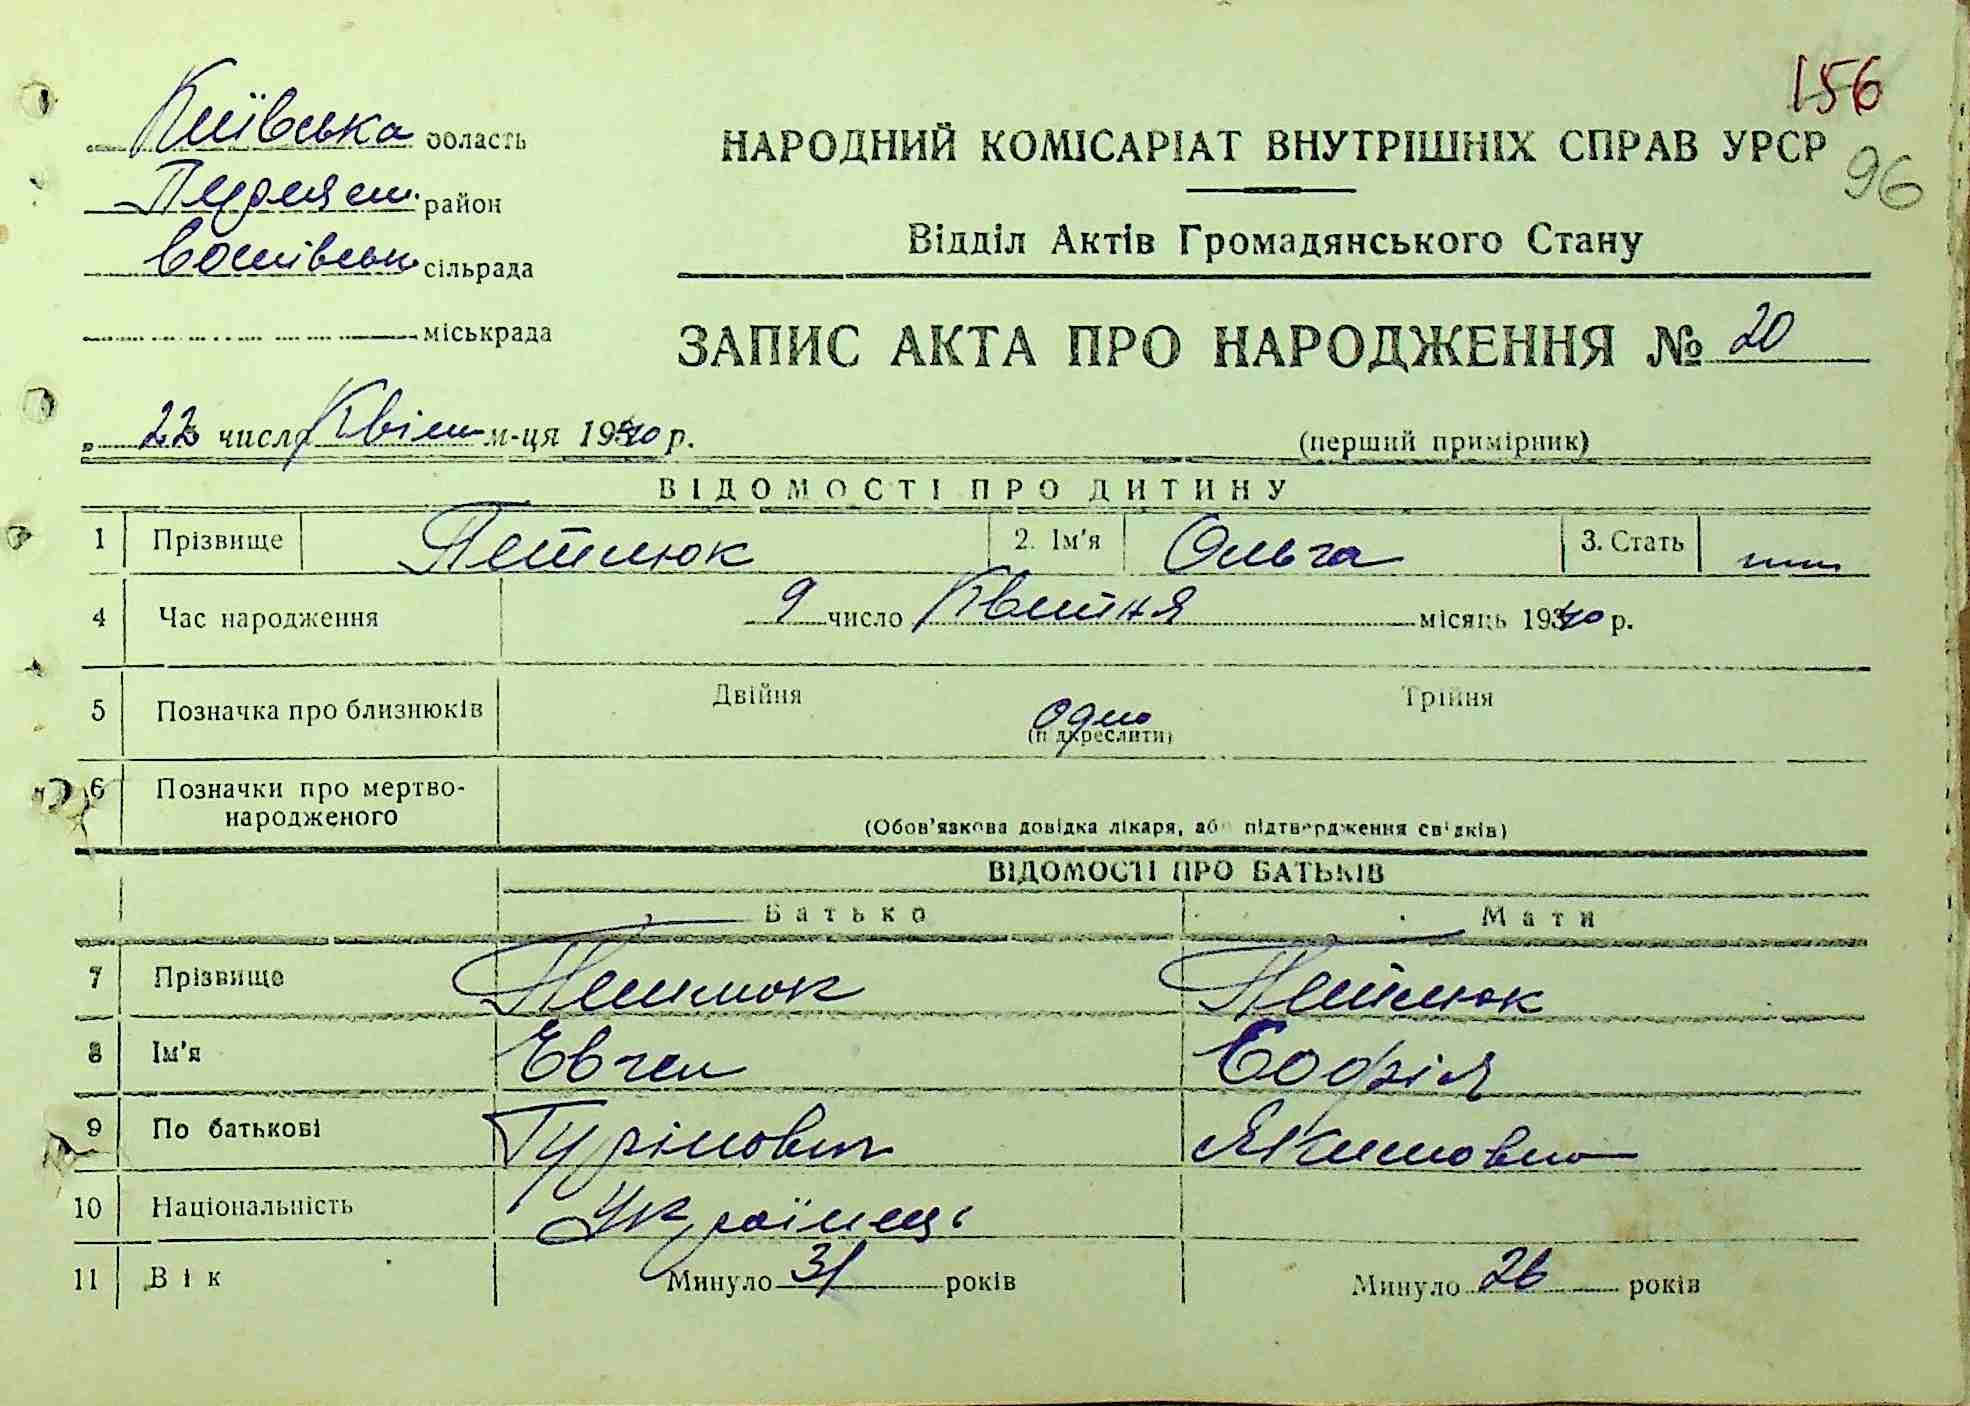 156
Київська область
НАРОДНИЙ КОМІСАРІАТ ВНУТРІШНІХ СПРАВ УРСР
96
район
Відділ Актів Громадянського Стану
сільрада
міськрада
ЗАПИС АКТА ПРО НАРОДЖЕННЯ № 20
„ 22 число Квітн м-ця 1940 р.
(перший примірник)
ВІДОМОСТІ ПРО ДИТИНУ
1 Прізвище Петлюк 2. Ім'я Ольга 3. Стать
4 Час народження 9 число Квітня місяць 1940 р.
5 Позначка про близнюків Двійня одно Трійня
(підкреслити)
6 Позначки про мертво-
народженого
(Обов'язкова довідка лікаря, або підтвердження свідків)
ВІДОМОСТІ ПРО БАТЬКІВ
Батько Мати
7 Прізвище Петлюк Петлюк
8 Ім'я Євген Софія
9 По батькові Гурінович Якимовна
10 Національність Українець
11 Вік Минуло 31 років Минуло 26 років